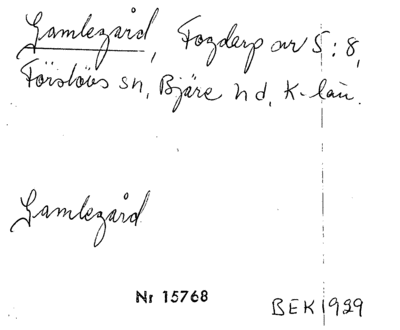 Gamlegård, Fogdarp nr 5:8,
Förslövs sn, Bjäre hd, K-län.
Gamlegård
Nr 15768
BEK 1929